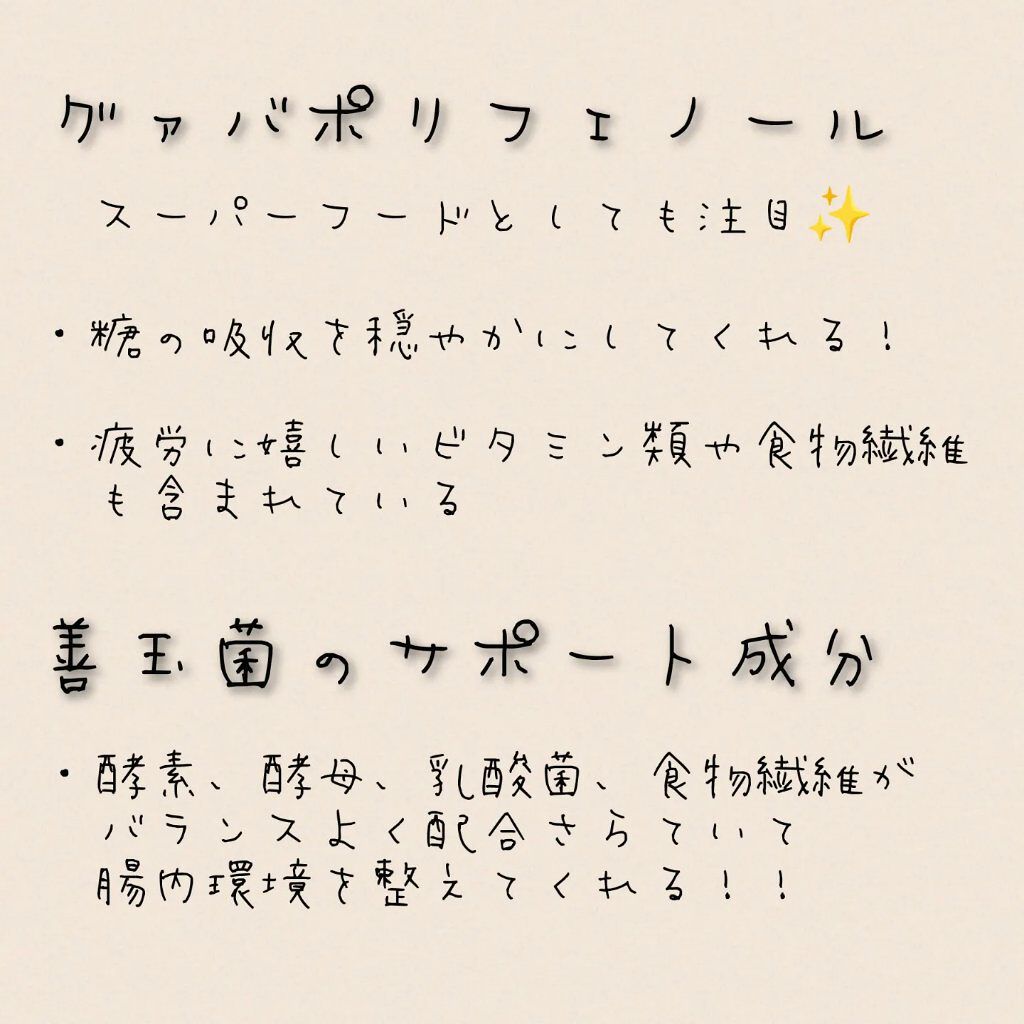 グァバポリフェノール
スーパーフードとしても注目✨
・糖の吸収を穏やかにしてくれる！
・疲労に嬉しいビタミン類や食物繊維
も含まれている
善玉菌のサポート成分
・酵素、酵母、乳酸菌、食物繊維が
バランスよく配合さらていて
腸内環境を整えてくれる！！